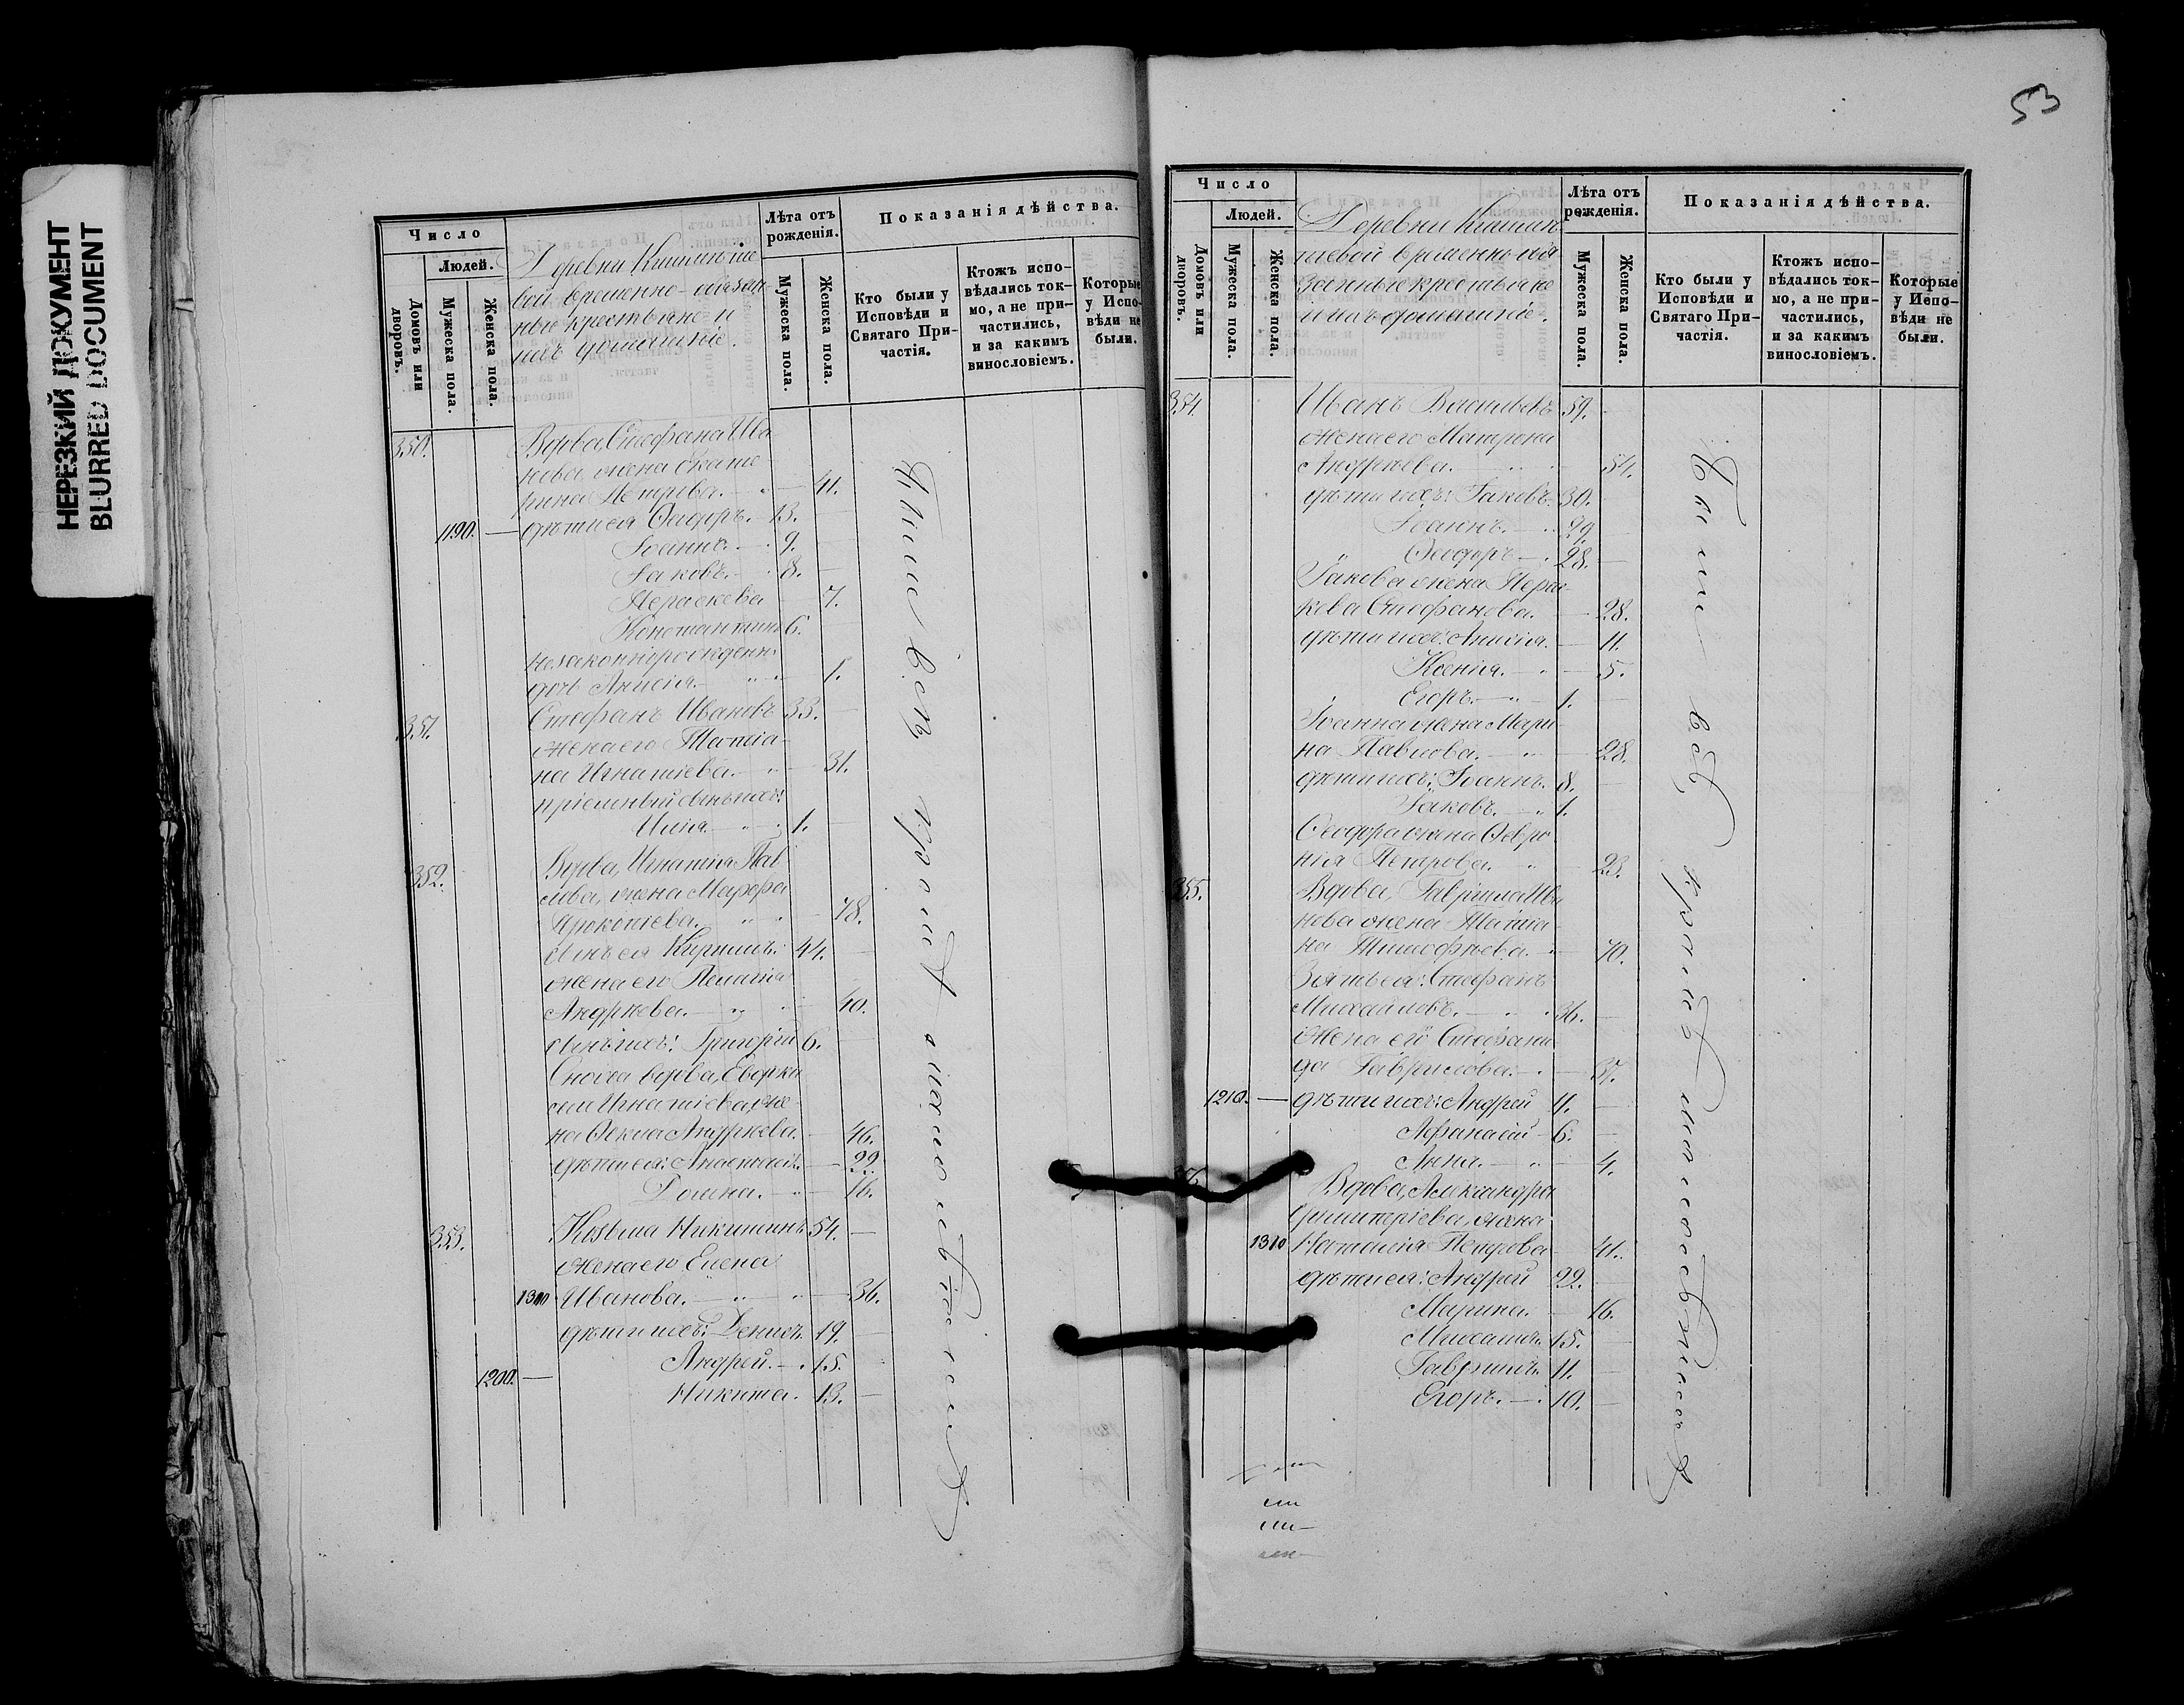 НЕРЕЗКИЙ ДОКУМЕНТ
BLURRED DOCUMENT
Число
Людей.
Домовъ или дворовъ.
Мужеска пола.
Женска пола.
Деревни
вой временно-обязан
ные крестьяне и
ихъ домашніе.
Лѣта отъ рожденія.
Мужеска пола.
Женска пола.
Показанія дѣйства.
Кто были у Исповѣди и Святаго Причастія.
Ктожъ исповѣдались токмо, а не причастились, и за какимъ винословіемъ.
Которые у Исповѣди не были.
350. Вдова, Стефана Ива
нова жена Екате
рина Петрова. 41.
1190. дѣти ея Ѳеодоръ. 13.
Іоаннъ. 9.
Іаковъ. 8.
Параскева 7.
Константинъ 6.
незаконнорожденн.
дочь Анисія. 1.
351. Стефанъ Ивановъ 33.
жена его Татіа-
на Игнатіева. 31.
пріемный сынъ ихъ:
Илія. 1.
352. Вдова, Игнатія Пав
лова, жена Марѳа
Прокопіева. 78.
сынъ ея Кириллъ. 44.
жена его Пелагія
Андреева. 40.
сынъ ихъ: Григорій 6.
Сноха вдова,
Игнатіева, же-
на Ѳекла Андреева. 46.
дѣти ея: 22.
Домна. 16.
353. Козьма Никитинъ 54.
жена его Елена
1300 Иванова. 36.
дѣти ихъ: Денисъ. 19.
Андрей. 15.
1200. Никита. 13.
Были всѣ
53
Число
Людей.
Домовъ или дворовъ.
Мужеска пола.
Женска пола.
Деревни
тіевой временно-обя
занные крестьяне
и ихъ домашніе.
Лѣта отъ рожденія.
Мужеска пола.
Женска пола.
Показанія дѣйства.
Кто были у Исповѣди и Святаго Причастія.
Ктожъ исповѣдались токмо, а не причастились, и за какимъ винословіемъ.
Которые у Исповѣди не были.
354. Иванъ Васильевъ 59.
жена его Матрона
Андреева. 54.
дѣти ихъ: Іаковъ. 30.
Іоаннъ. 29
Ѳеодоръ 28.
Іакова жена Парас
кева Стефанова. 28.
дѣти ихъ: Анисія. 11.
Ксенія. 5.
Егоръ. 1.
Іоанна жена Мари
на Павлова. 28.
дѣти ихъ: Іоаннъ. 8.
Іаковъ. 1.
Ѳеодора жена Февро
нія Петрова. 23.
355. Вдова, Гавріила Ива
нова жена Татіа
на Тимофеева. 70.
Зять ея: Стефанъ
Михайловъ. 36.
жена его Стефани
да Гаврилова. 37.
1210. дѣти ихъ: Андрей 11.
Аѳанасій 6.
Анна. 4.
Вдова, Александра
Димитріева, жена
1310 Наталія Петрова 41.
дѣти ея: Андрей 22.
Марина. 16.
Михаилъ. 15.
Гавріилъ. 11.
Егоръ. 10.
Были всѣ